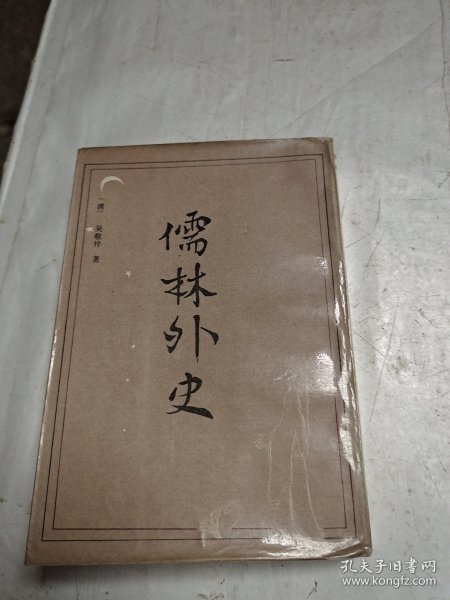 儒林外史
〔清〕 吴敬梓 著
孔夫子旧书网
www.kongfz.com